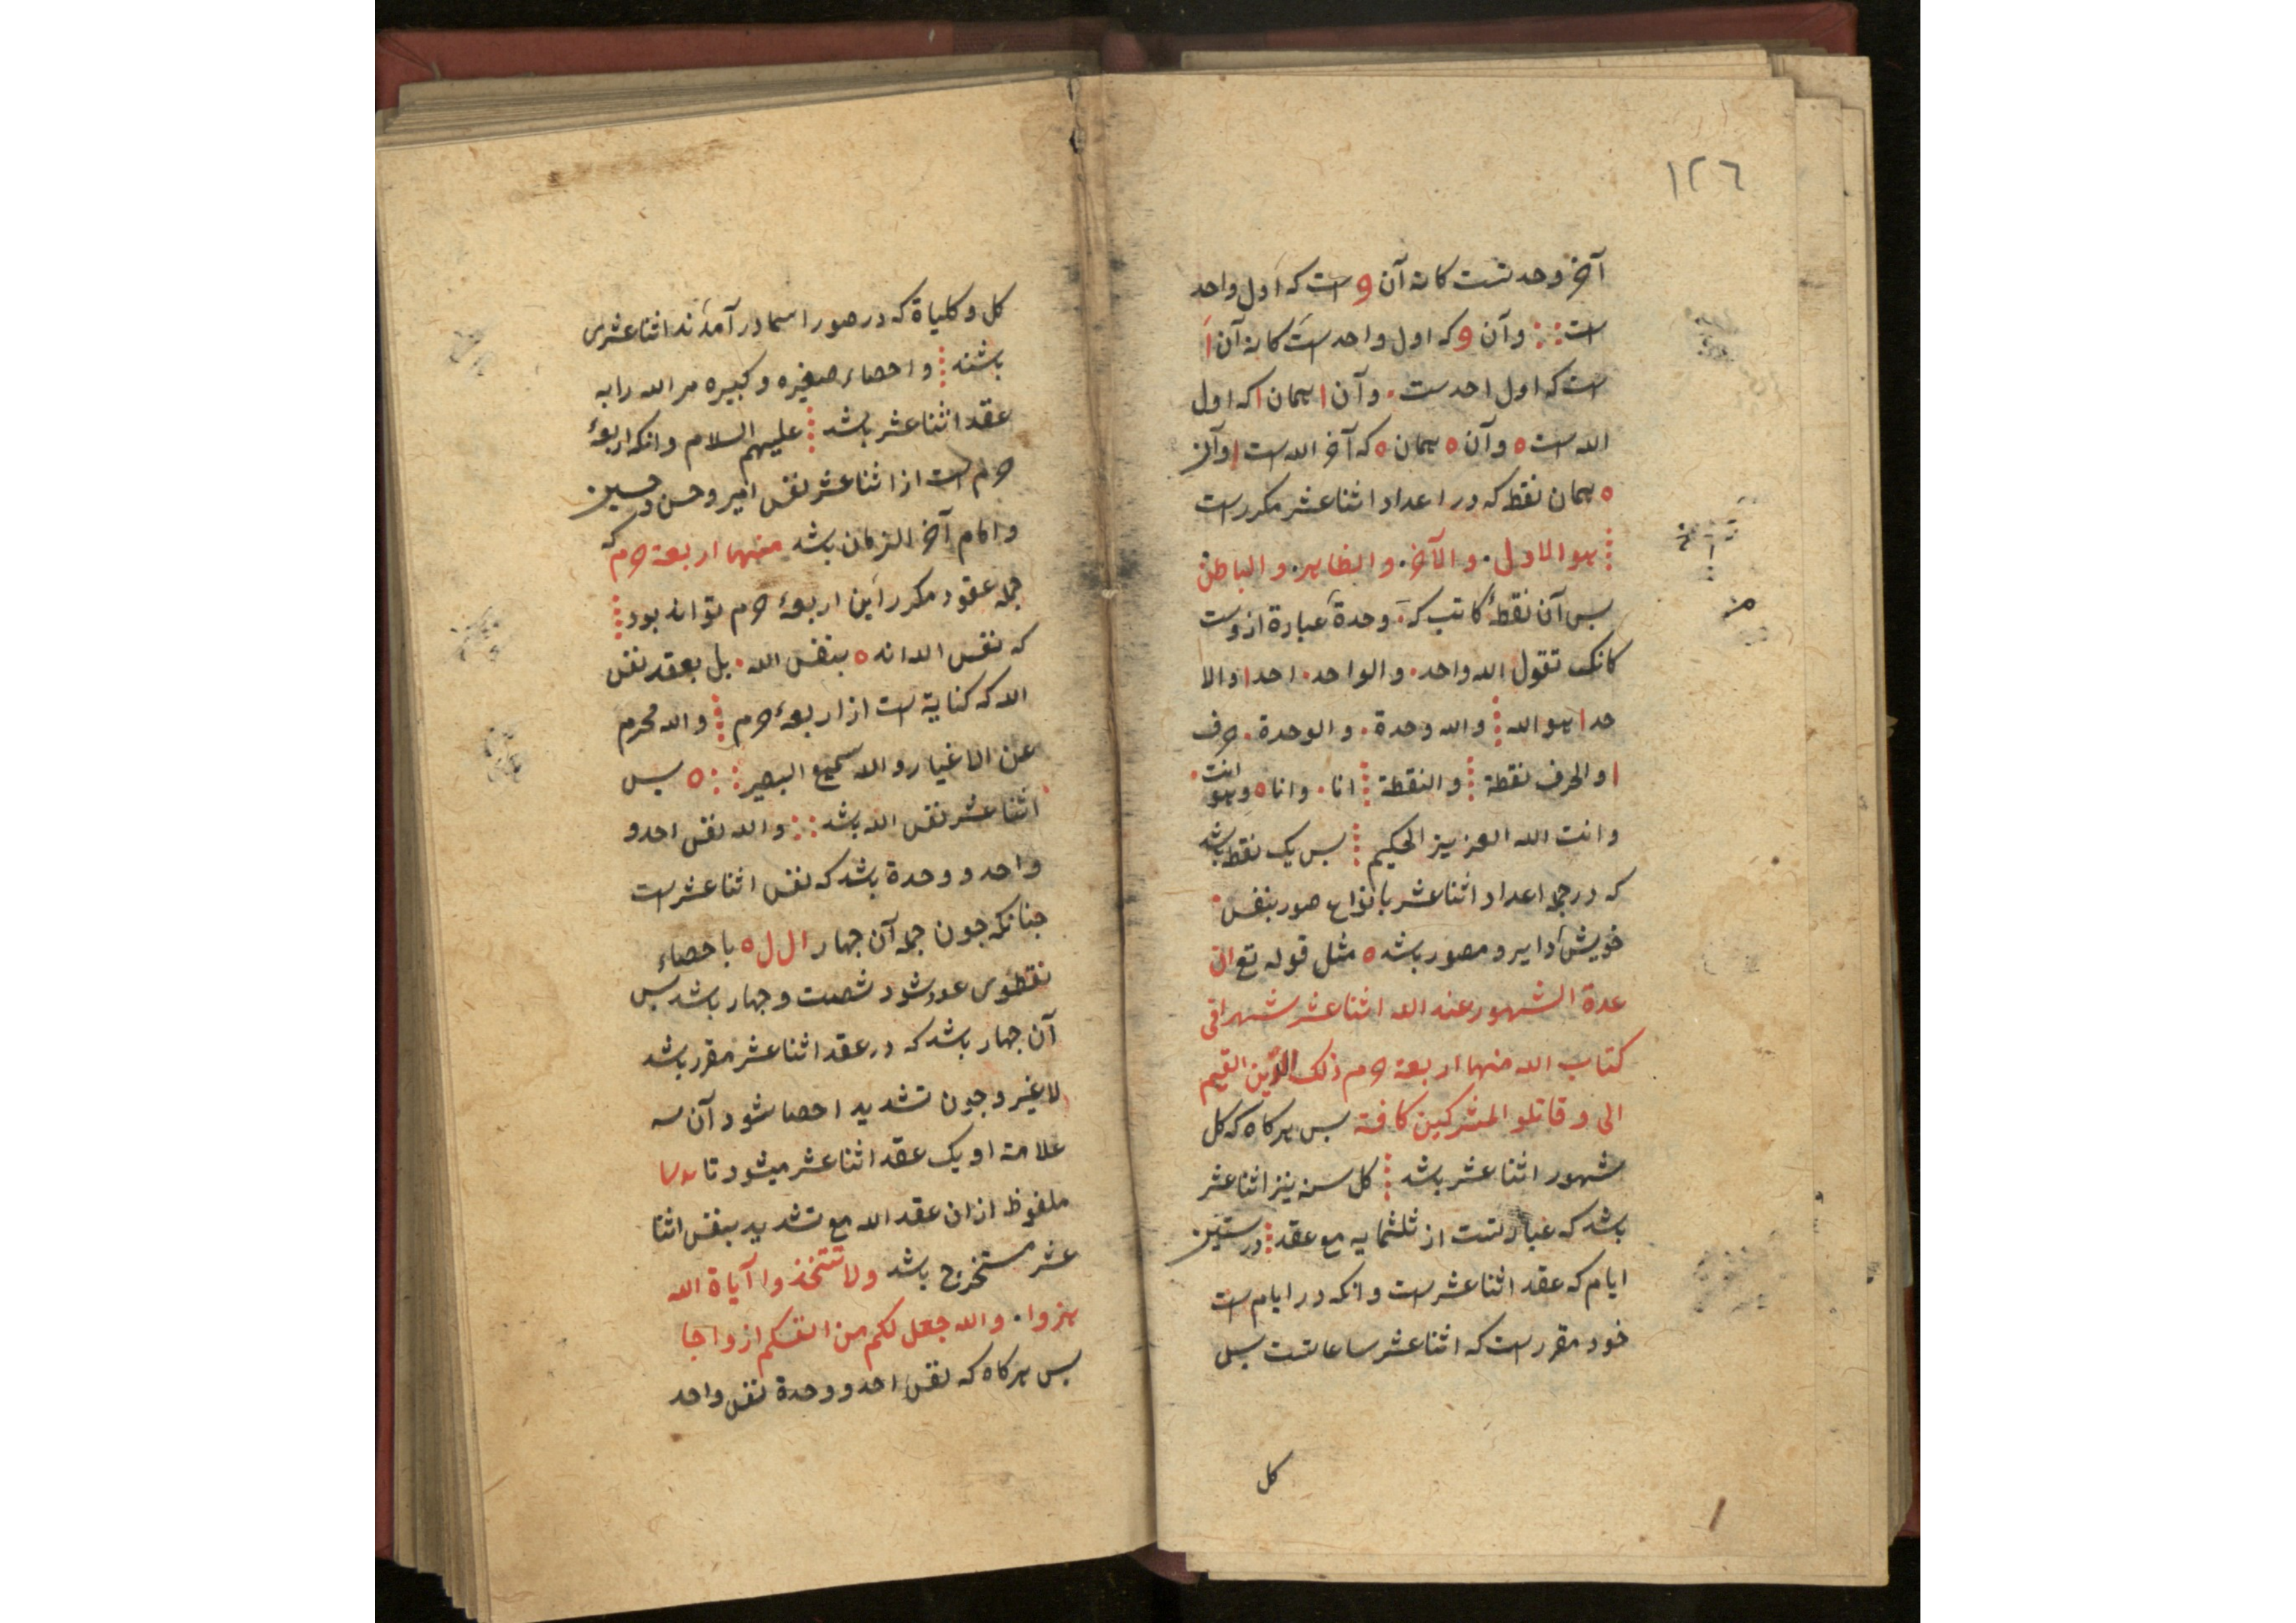 ١٢٦
آخر وحدتست كانه آن و است كه اول واحد
است وآن و كه اول واحد است كانه آن ا
است كه اول احدست . وآن ا همان ا كه اول
الله است ه وآن ه همان ه كه آخر الله است ا وآن
ه همان نقط كه در اعداد اثنا عشر مكرر است
هو الاول . والآخر . والظاهر . والباطن
بس آن نقطهٔ كاتب كه . وحدة عبارة ازوست
كانك تقول الله واحد . والواحد . احد ا والا
حد ا هو الله والله وحدة . والوحدة . حرف
ا والحرف نقطة والنقطة انا . وانا ه وهو انت .
وانت الله العزيز الحكيم بس يك نقط باشد
كه در جملهٔ اعداد اثنا عشر بانواع صور بنفس
خويش داير و مصور باشد ه مثل قوله تع ان
عدة الشهور عند الله اثنا عشر شهرا فى
كتاب الله منها اربعة حرم ذلك الدين القيم
الى و قاتلو المشركين كافة بس هركاه كه كل
شهور اثنا عشر باشد كل سنه نيز اثنا عشر
باشد كه عبارتست از ثلثمايه مع عقد در ستين
ايام كه عقد اثنا عشر است وانكه در ايام است
خود مقرر است كه اثنا عشر ساعاتست بس
كل
كل و كلياة كه در صور اسما در آمده‌اند اثنا عشرى
باشند واحصاء صغيره و كبيره مر الله را به
عقد اثنا عشر باشد عليهم السلام وانكه اربعهٔ
حرم است از اثنا عشر نفس امير و حسن و حسين
و امام آخر الزمان باشد منها اربعة حرم كه
جمله عقود مكرر اين اربعهٔ حرم تواند بود
كه نفس الله اند ه بنفس الله . بل بعقد نفس
الله كه كناية است از اربعهٔ حرم والله محرم
عن الاغيار والله سميع البصير ه بس
اثنا عشر نفس الله باشد والله نفس احد و
واحد و وحدة باشد كه نفس اثنا عشر است
جنانكه جون جمله آن جهار ا ل ل ه باحصاء
نقطوى عدد شود شصت و جهار باشد بس
آن جهار باشد كه در عقد اثنا عشر مقرر باشد
لا غير و جون تشديد احصا شود آن سه
علامة او يك عقد اثنا عشر ميشود تا
ملفوظ ازان عقد الله مع تشديد بنفس اثنا
عشر مستخرج باشد ولا تتخذوا آياة الله
هزوا . والله جعل لكم من انفسكم ازواجا
بس هركاه كه نفس احد و وحدة نفس واحد